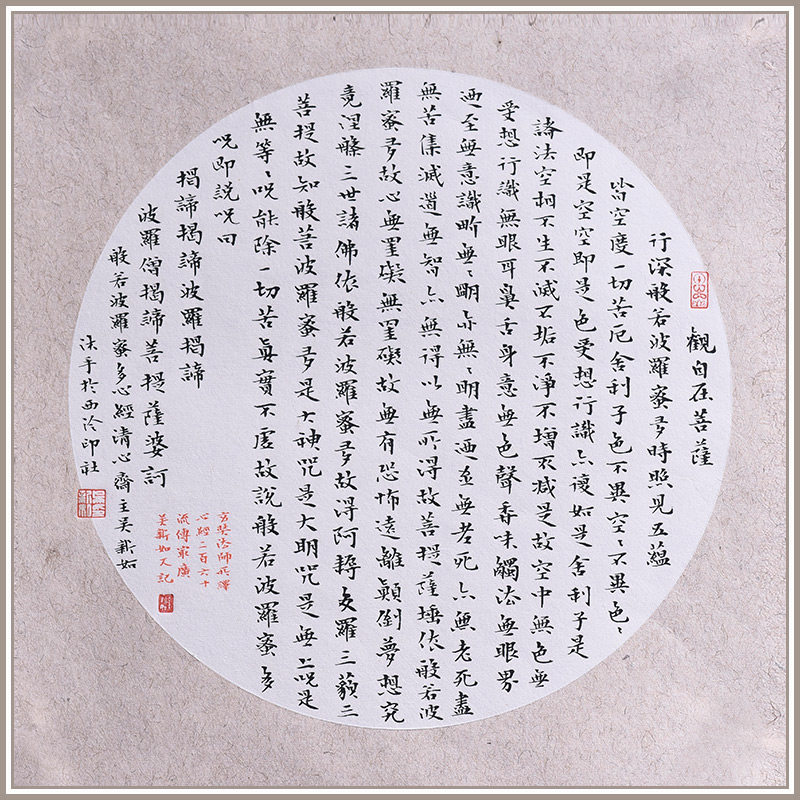 觀自在菩薩
行深般若波羅蜜多時照見五蘊
皆空度一切苦厄舍利子色不異空、不異色、
即是空空即是色受想行識亦復如是舍利子是
諸法空相不生不滅不垢不淨不增不減是故空中無色無
受想行識無眼耳鼻舌身意無色聲香味觸法無眼界
迺至無意識界無、明亦無、明盡迺至無老死亦無老死盡
無苦集滅道無智亦無得以無所得故菩提薩埵依般若波
羅蜜多故心無罣礙無罣礙故無有恐怖遠離顛倒夢想究
竟涅槃三世諸佛依般若波羅蜜多故得阿耨多羅三藐三
菩提故知般若波羅蜜多是大神咒是大明咒是無上呪是
無等、呪能除一切苦真實不虛故說般若波羅蜜多
呪即說呪曰
揭諦揭諦波羅揭諦
波羅僧揭諦菩提薩婆訶
般若波羅蜜多心經清心齋主吳新如
沐手於西泠印社
玄奘法師所譯
心經二百六十
流傳最廣
吳新如又記